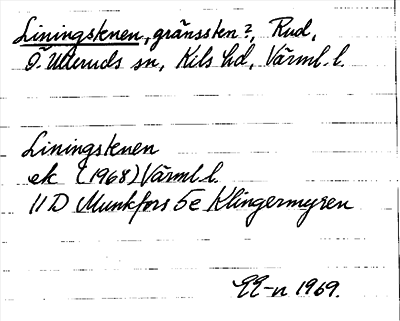 Liningstenen, gränssten?, Rud,
Ö. Ulleruds sn, Kils hd, Värml. l.
Liningstenen
ek (1968) Värml. l.
11 D Munkfors 5e Klingermyren
1969.